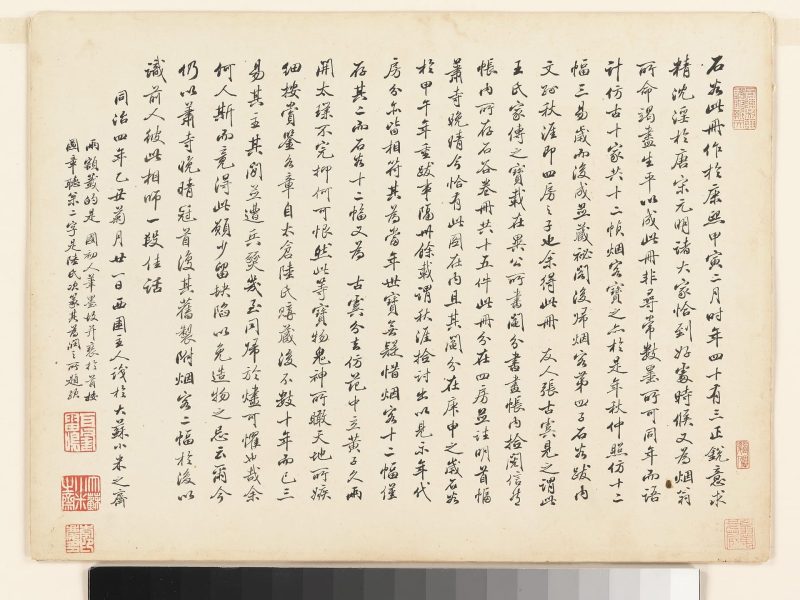 石谷此冊作於康熙甲寅二月时年四十有三正銳意求
精沈淫於唐宋元明諸大家恰到好處時候又為烟翁
所命竭盡生平以成此冊非尋常數墨所可同年而語
計仿古十家共十二幀烟客寶之亦於是年秋仲照仿十二
幅三易歲而後成並藏祕閣後歸烟客第四子石谷跋內
文孙秋涯即四房之子也余得此冊 友人張古雲見之謂此
王氏家傳之寶載在異公所書鬮分書畫帳內拾閱信然
帳內所存石谷卷冊共十五件此冊分在四房並註明首幅
蕭寺晚晴今恰有此圖在內且其鬮分在庚申之歲石谷
於甲午年重跋事隔卅餘載謂秋涯撿討出以見示年代
房分亦皆相符其為當年世寶無疑惜烟客十二幅僅
存其二而石谷十二幅又為 古雲分去仿范中立黃子久兩
開太璞不完抑何可恨然此等寶物鬼神所瞰天地所嫉
細按賞鑒各章自太倉陸氏舊藏後不數十年而已三
易其主其間並遭兵燹幾至同歸於燼可懼也哉余
何人斯而竟得此願少留缺陷以免造物之忌云爾今
仍以蕭寺晚晴冠首復其舊製附烟客二幅於後以
識前人彼此相師一段佳話
同治四年乙丑菊月廿一日西圃主人識於大蘇小米之齋
兩顆籤的是 國初人筆墨故并裝於首按
圖章聽泉二字是陸氏次第其為潤之所題歟